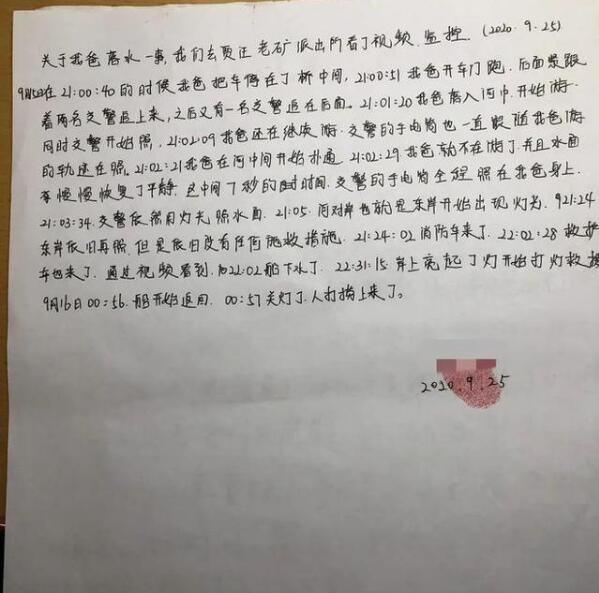 关于我爸落水一事,我们去贾汪老矿派出所看了视频监控.(2020.9.25)
9月15日在21:00:40的时候我爸把车停在了桥中间,21:00:51我爸开车门跑.后面紧跟
着两名交警追上来,之后又有一名交警追在后面.21:01:20我爸落入河中.开始游.
同时交警开始照,21:02:09我爸还在继续游.交警的手电筒也一直跟随我爸游
的轨迹在照.21:02:21我爸在河中间开始扑通.21:02:29我爸就不在游了.并且水面
慢慢恢复了平静.这中间7秒的时间.交警的手电筒全程照在我爸身上.
21:03:34.交警依然用灯光照水面.21:05.河对岸也就是东岸开始出现灯光.21:24
东岸依旧再照.但是依旧没有任何施救措施.21:24:02消防车来了.22:02:28救护
车也来了.通过视频看到.22:02船下水了.22:31:15.岸上亮起了灯开始打灯救援
9月16日00:56.船开始返回.00:57关灯了.人打捞上来了。
2020.9.25